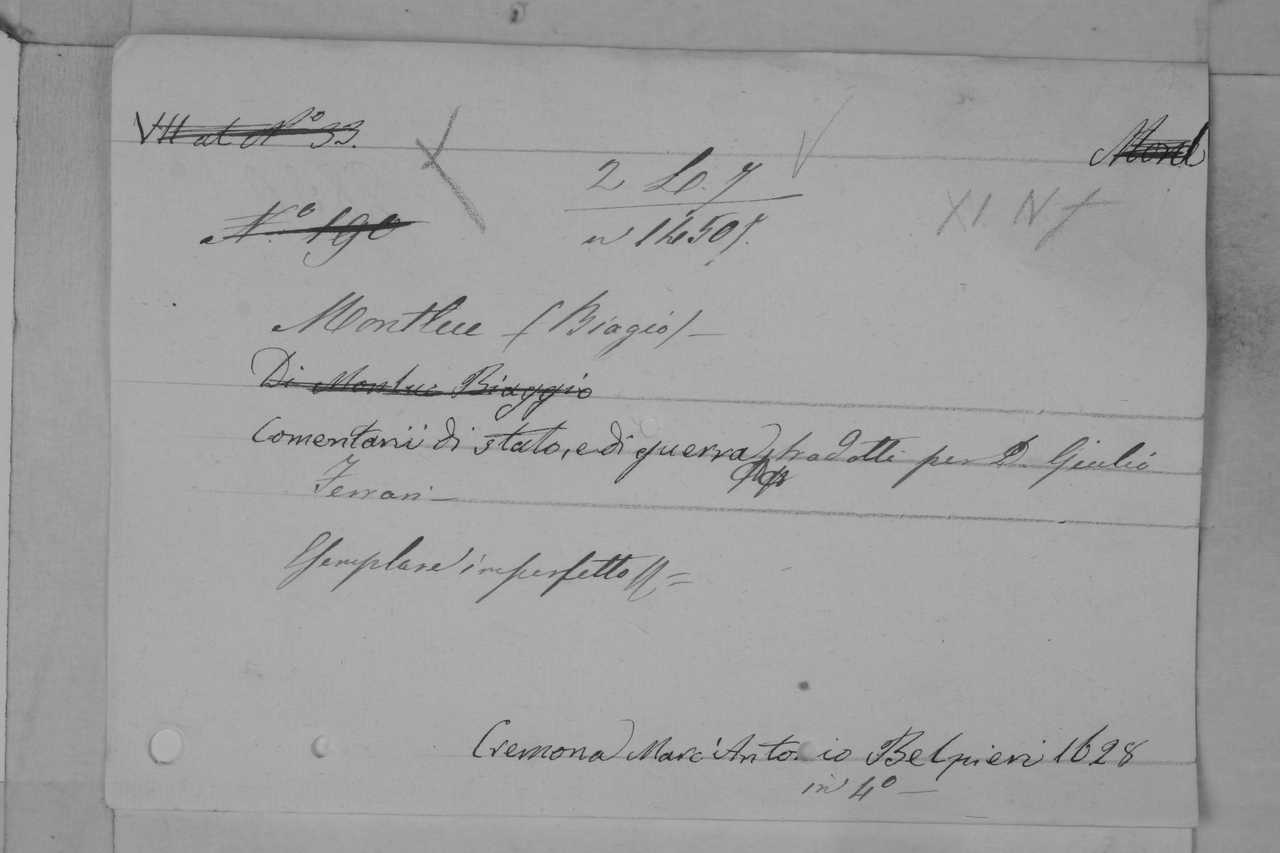 VII at N.o 33.
Mont
2 L. 7
XI. N
N.o 190
n 14505.
Montluc (Biagio) -
Di Monluc Biaggio
Comentarii di stato, e di guerra, tradotti per D. Giulio
Ferrari -
Esemplare imperfetto =
Cremona Marc'Antonio Belpieri 1628
in 4o -